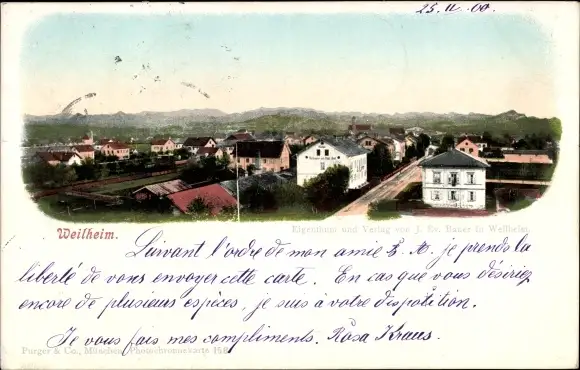 25. II. 00.
Weilheim.
Eigenthum und Verlag von J. Ev. Bauer in Weilheim.
Suivant l'ordre de mon amie L. M. je prends la
liberté de vous envoyer cette carte. En cas que vous désiriez
encore de plusieurs espèces, je suis à votre disposition.
Je vous fais mes compliments. Rosa Kraus.
Purger & Co., München, Photochromiekarte 158